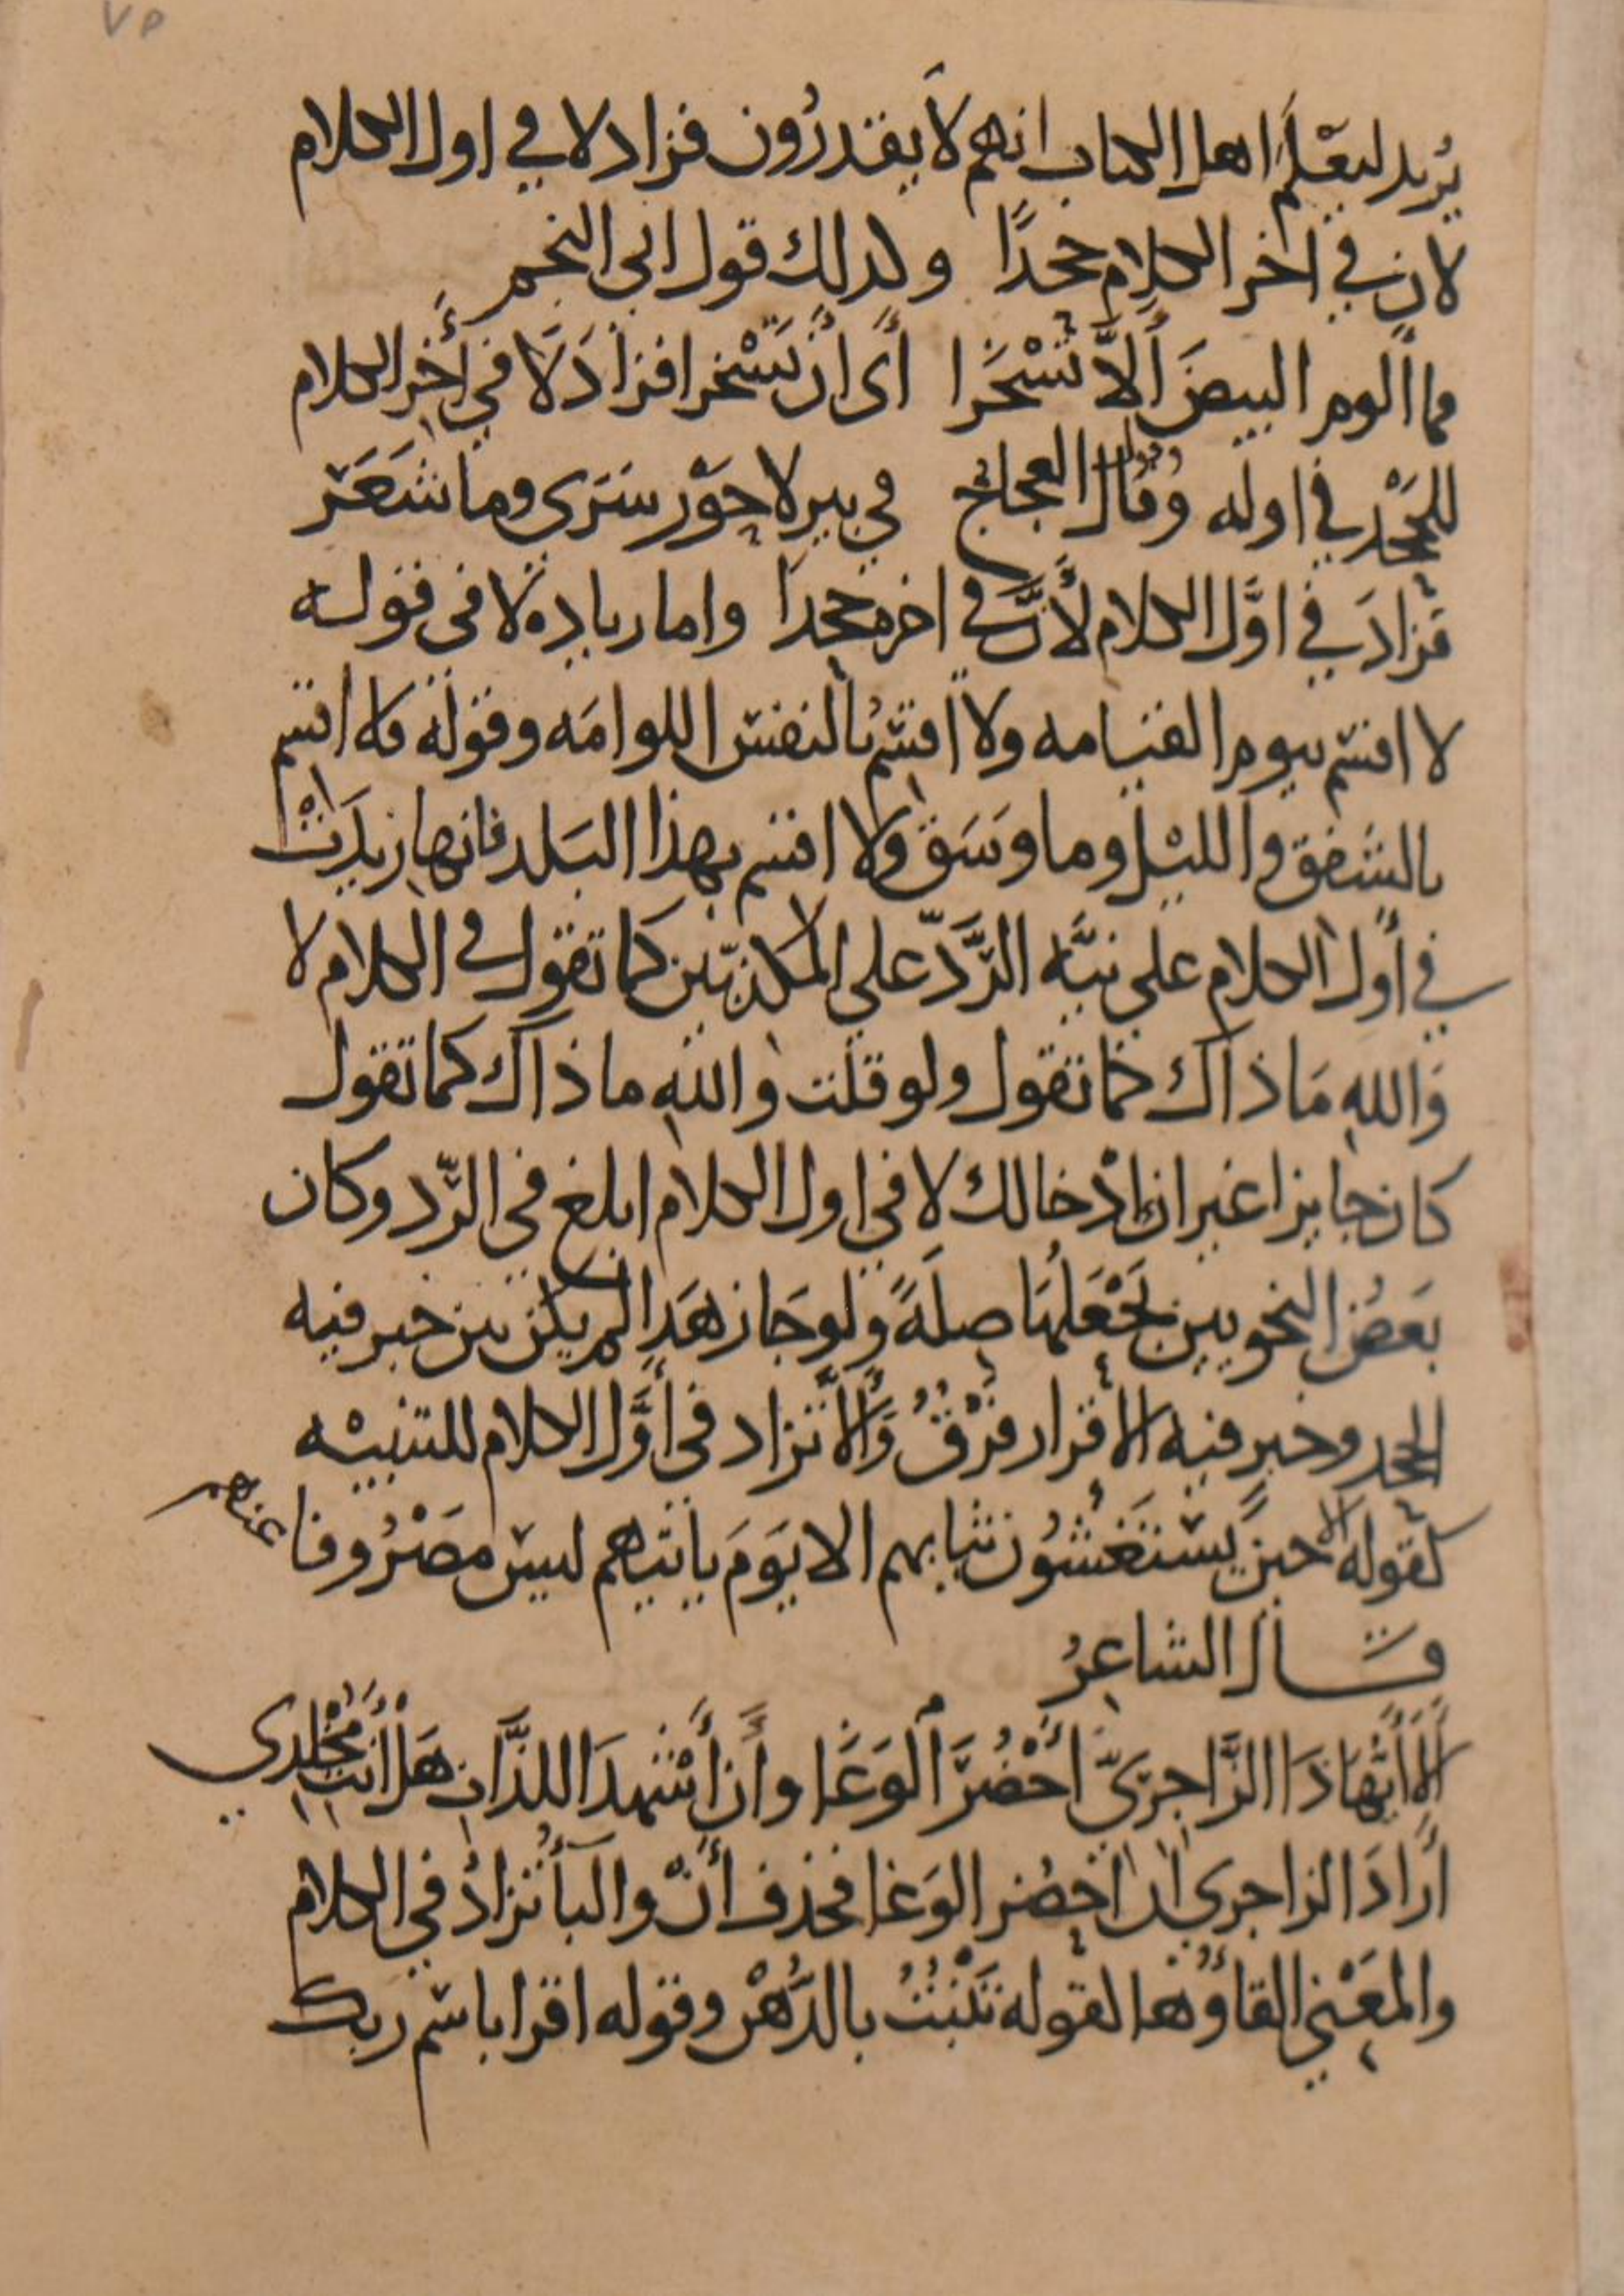 ٧٥
يُريد ليعْلَم اهل الكتاب انهم لا يقدرُون فزاد لا في اول الكلام
لان في اخر الكلام جحدًا وكذلك قول ابي النجم
فما ألوم البيضَ ألاّ تَسْخَرا أي ان تَسْخرا فزادَ لَا في أخِر الكلام
للجَحْد في اوله وقال العجاج في بير لا حوْر سَرَى وما شَعَرْ
فزادَ في اوَّل الكلام لأنَّ في اخره جحدا واما زياده لا في قوله
لا اقسم بيوم القيامه ولا اقسم بالنفس اللوامَه وقوله فلا اقسم
بالشفق والليْل وما وَسَق ولا اقسم بهذا البَلد فانها زيدَتْ
في أول الكلام على نيَّه الرَّدّ على المكذبّين كما تقول في الكلام لا
وَالله مَا ذاك كما تقول ولو قلت والله ما ذاك كما تقول
كان جايزا غير ان إدْخالك لا في اول الكلام ابلغ في الرّد وكان
بَعضُ النحويين يَجْعَلهَا صِلَةً ولو جَاز هَذا لم يكن بين خبر فيه
الجحد وخبر فيه الأقرار فرْقٌ وَألَا تزاد في أوَّل الكلام للتنبيْه
كقوله ألا حينَ يسْتَغشُون ثيابهم الا يَوَمَ ياتيهم ليسَ مصْرُوفا عنهم
قال الشاعِرُ
أَلَا أَيُّهَاذَا الزَّاجرِيّ أَحْضُرَ الوَغَا وأَن أَشْهدَ اللذَّاتِ هَلْ أَنْتَ مُخْلِدي
أرَادَ الزاجري ان احضُر الوَغا فحذف أنْ والبَأ تُزادُ في الكلام
والمعَْني القاؤُهَا كقوله تَنْبُتُ بالدُّهْن وقوله اقرا باسْم ربك